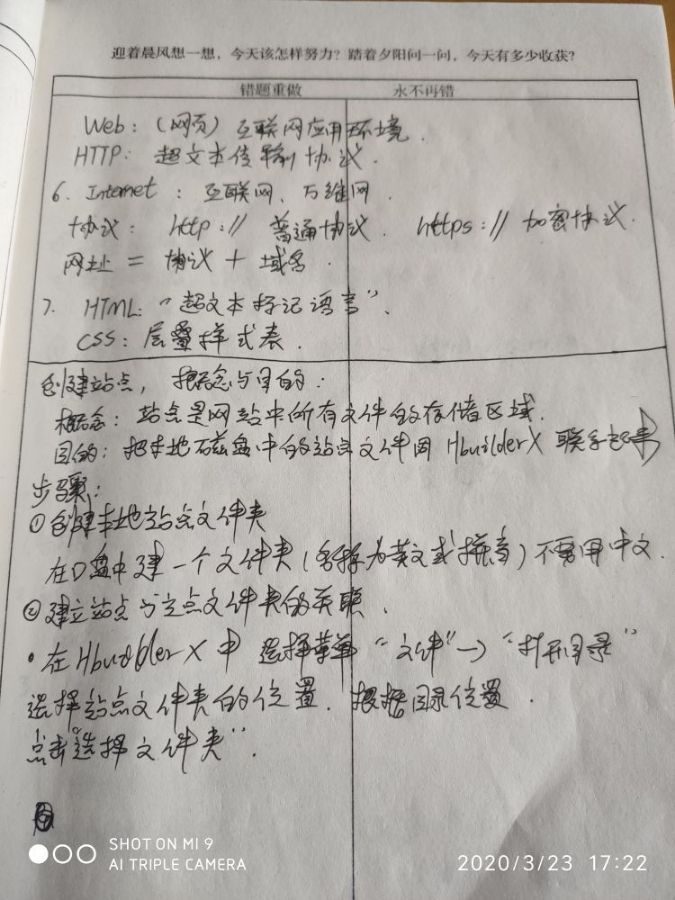 迎着晨风想一想，今天该怎样努力？踏着夕阳问一问，今天有多少收获？
错题重做 永不再错
Web：（网页）互联网应用环境．
HTTP：超文本传输协议．
6．Internet：互联网、万维网．
协议：http:// 普通协议． https:// 加密协议．
网址 = 协议 + 域名．
7．HTML：“超文本标记语言”．
CSS：层叠样式表．
创建站点，概念与目的：
概念：站点是网站中所有文件的存储区域．
目的：把本地磁盘中的站点文件同HbuilderX联系起来
步骤：
①创建本地站点文件夹
在D盘中建一个文件夹（名称为英文或拼音）不要用中文．
②建立站点与文点文件夹的关联．
·在HbuilderX中 选择菜单“文件”→“打开目录”
选择站点文件夹的位置．根据目录位置．
点击“选择文件夹”．
SHOT ON MI 9
AI TRIPLE CAMERA
2020/3/23 17:22